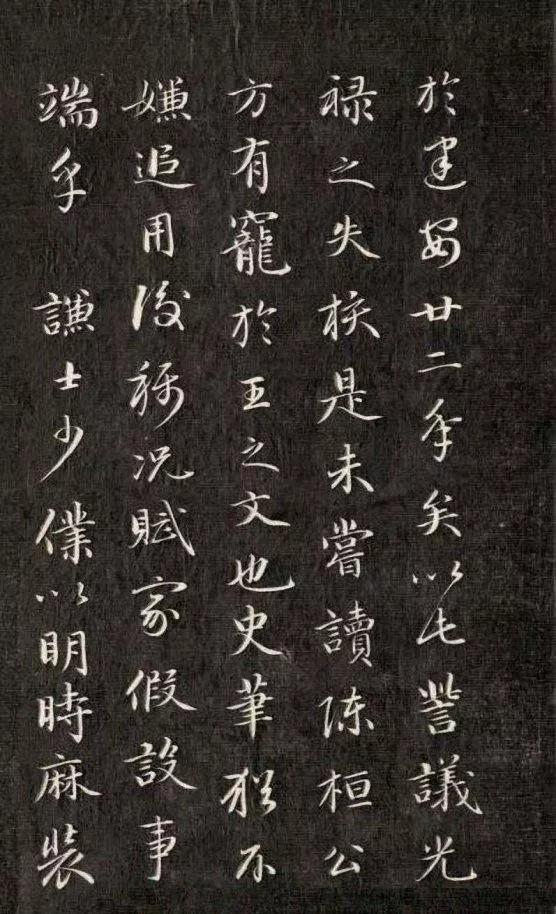 於建安廿二年矣以此訾議光
禄之失核是未嘗讀陈桓公
方有寵於王之文也史筆猶不
嫌追用後稱况賦家假設事
端乎 謙士少僕以明時麻裝